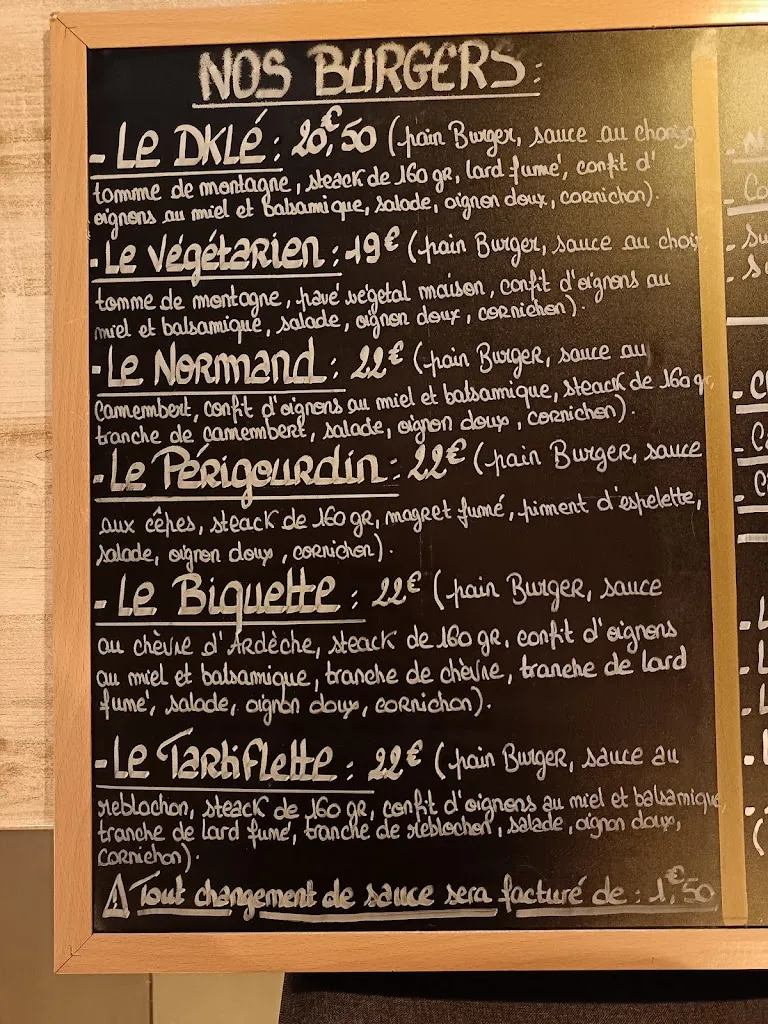 NOS BURGERS:
- Le DKLÉ: 20€,50 (pain Burger, sauce au
tomme de montagne, steack de 160 gr, lard fumé, confit d'
oignons au miel et balsamique, salade, oignon doux, cornichon).
- Le Végétarien: 19€ (pain Burger, sauce au choix
tomme de montagne, pavé végétal maison, confit d'oignons au
miel et balsamique, salade, oignon doux, cornichon).
- Le Normand: 22€ (pain Burger, sauce au
camembert, confit d'oignons au miel et balsamique, steack de 160 gr,
tranche de camembert, salade, oignon doux, cornichon).
- Le Périgourdin: 22€ (pain Burger, sauce
aux cêpes, steack de 160 gr, magret fumé, piment d'espelette,
salade, oignon doux, cornichon).
- Le Biquette: 22€ (pain Burger, sauce
au chèvre d'Ardèche, steack de 160 gr, confit d'oignons
au miel et balsamique, tranche de chèvre, tranche de lard
fumé, salade, oignon doux, cornichon).
- Le Tartiflette: 22€ (pain Burger, sauce au
reblochon, steack de 160 gr, confit d'oignons au miel et balsamique,
tranche de lard fumé, tranche de reblochon, salade, oignon doux,
cornichon).
⚠ Tout changement de sauce sera facturé de: 1€,50